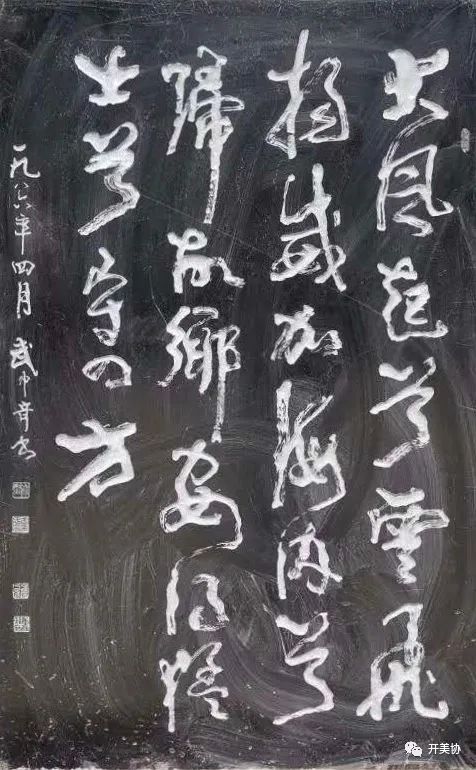 大風起兮雲飛
揚威加海内兮
歸故鄉安得猛
士兮守四方
一九八六年四月 武中奇书
开美协